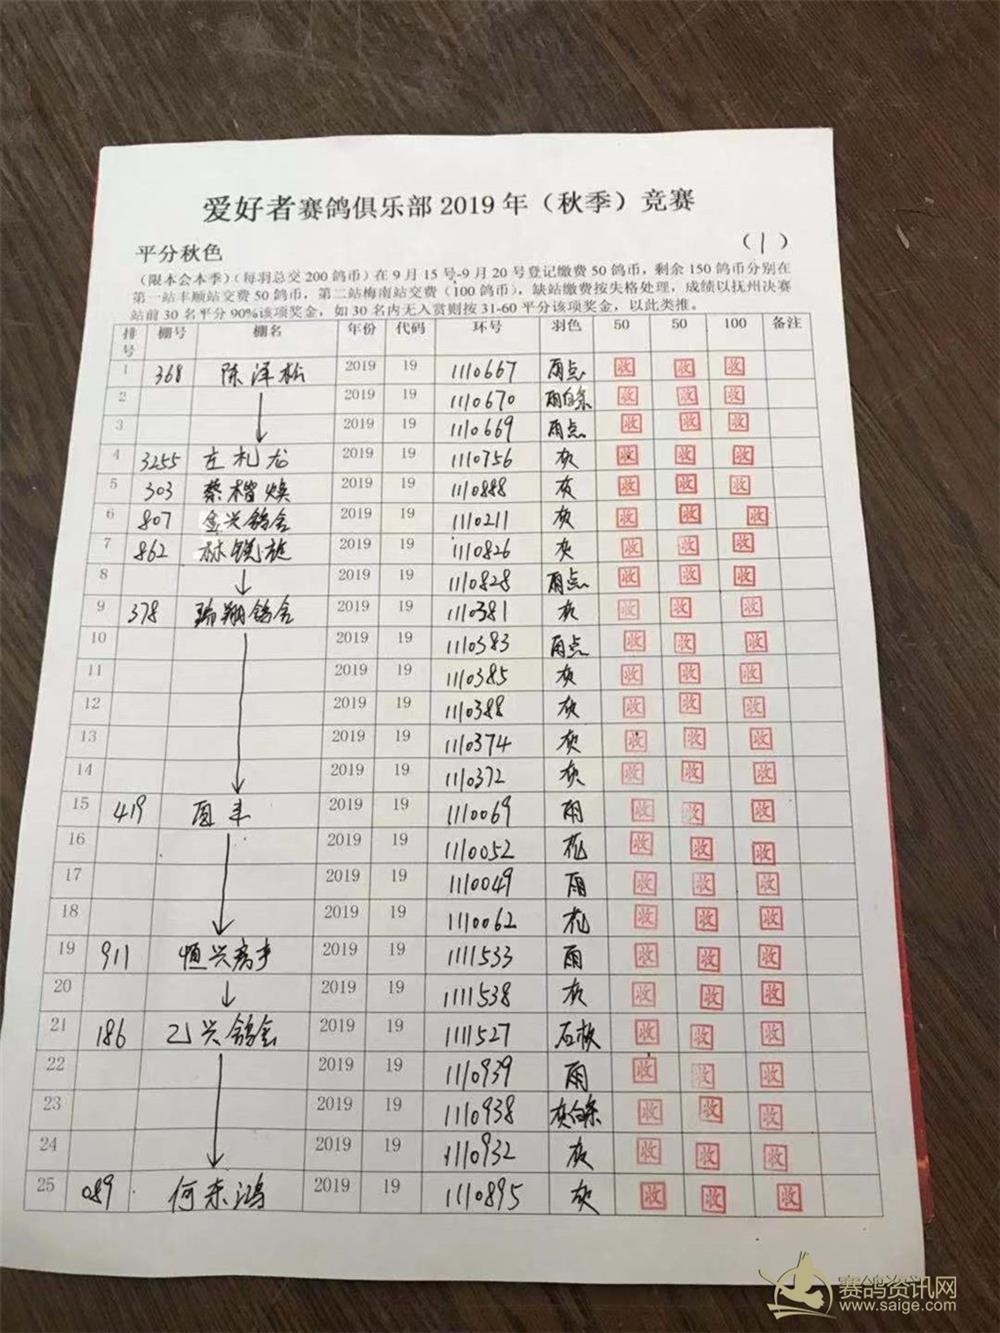 爱好者赛鸽俱乐部 2019 年（秋季）竞赛
平分秋色
（1）
（限本会本季）（每羽总交 200 鸽币）在 9 月 15 号-9 月 20 号登记缴费 50 鸽币，剩余 150 鸽币分别在
第一站丰顺站交费 50 鸽币，第二站梅南站交费（100 鸽币），缺站缴费按失格处理，成绩以抚州决赛
站前 30 名平分 90%该项奖金，如 30 名内无入赏则按 31-60 平分该项奖金，以此类推。
排号 棚号 棚名 年份 代码 环号 羽色 50 50 100 备注
1 368 陈泽松 2019 19 1110667 雨点 收 收 收
2 2019 19 1110670 雨白条 收 收 收
3 2019 19 1110669 雨点 收 收 收
4 3255 庄礼龙 2019 19 1110756 灰 收 收 收
5 303 蔡楷焕 2019 19 1110888 灰 收 收 收
6 807 金兴鸽舍 2019 19 1110211 灰 收 收 收
7 862 林锐旋 2019 19 1110826 灰 收 收 收
8 2019 19 1110828 雨点 收 收 收
9 378 瑞翔鸽舍 2019 19 1110381 灰 收 收 收
10 2019 19 1110383 雨点 收 收 收
11 2019 19 1110385 灰 收 收 收
12 2019 19 1110388 灰 收 收 收
13 2019 19 1110374 灰 收 收 收
14 2019 19 1110372 灰 收 收 收
15 419 2019 19 1110069 雨 收 收 收
16 2019 19 1110052 花 收 收 收
17 2019 19 1110049 雨 收 收 收
18 2019 19 1110062 花 收 收 收
19 911 恒兴 2019 19 1111533 雨 收 收 收
20 2019 19 1111538 灰 收 收 收
21 186 乙兴鸽舍 2019 19 1111527 石板 收 收 收
22 2019 19 1110939 雨 收 收 收
23 2019 19 1110938 灰白条 收 收 收
24 2019 19 1110932 灰 收 收 收
25 089 何东鸿 2019 19 1110895 灰 收 收 收
赛鸽资讯网
www.saige.com